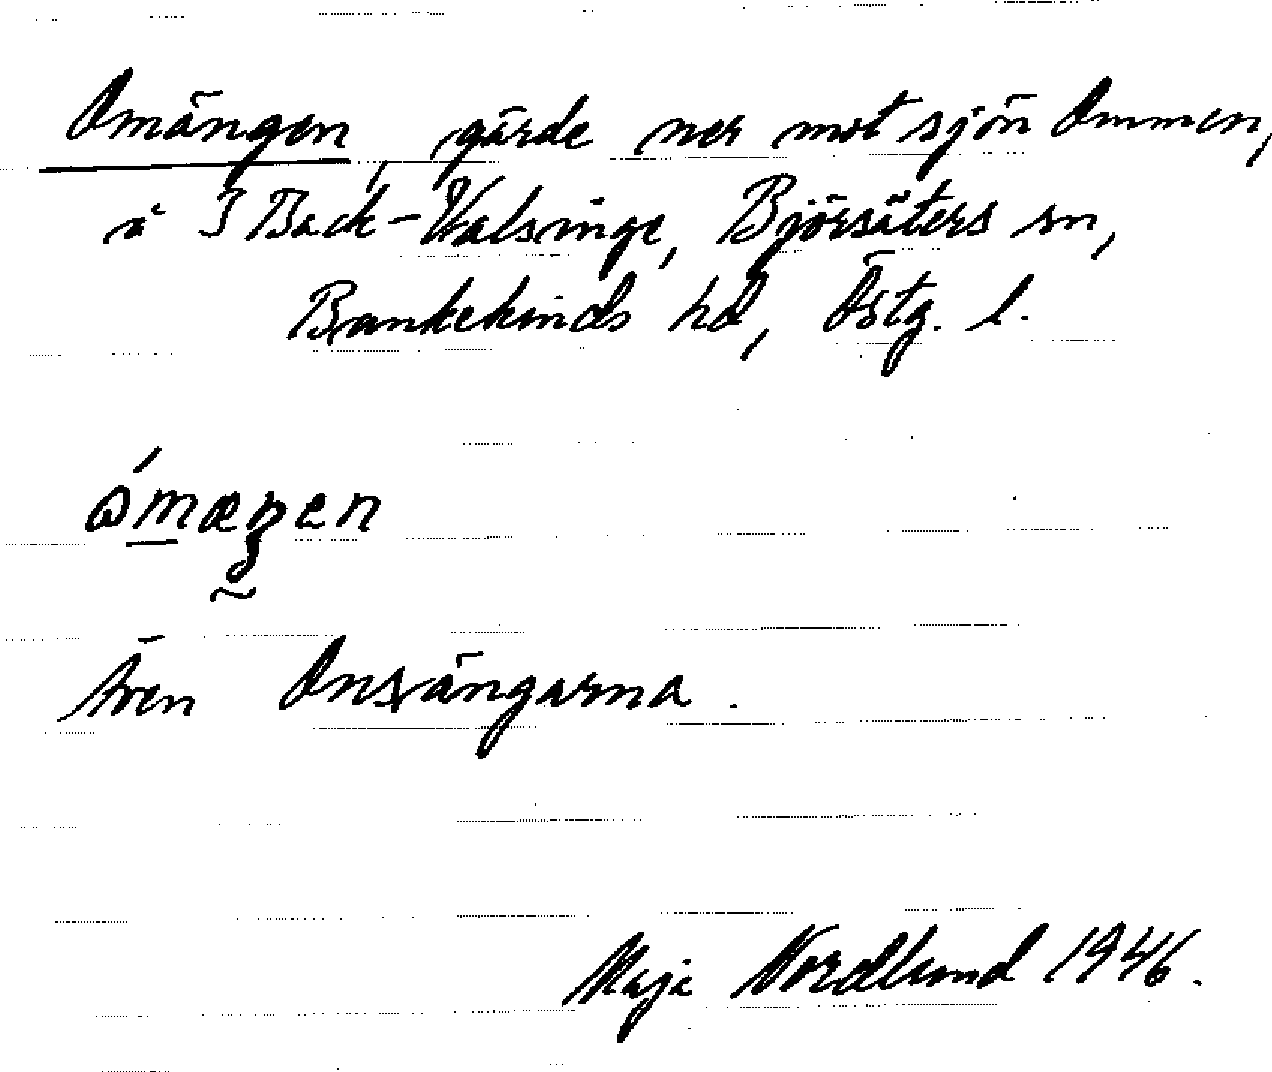 Omängen, gärde ner mot sjön Ommen,
å I Back-Walsinge, Björsäters sn,
Bankekinds hd, Östg. l.
Även Onsängarna.
Maja Nordlund 1946.